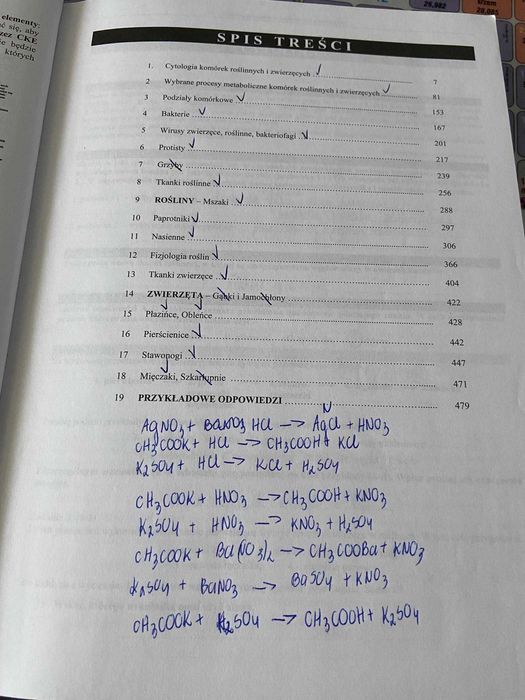 elementy:
ć się, aby
zez CKE
ie będzie
których
26,982
28,085
SPIS TREŚCI
1. Cytologia komórek roślinnych i zwierzęcych 7
2 Wybrane procesy metaboliczne komórek roślinnych i zwierzęcych 81
3 Podziały komórkowe 153
4 Bakterie 167
5 Wirusy zwierzęce, roślinne, bakteriofagi 201
6 Protisty 217
7 Grzyby 239
8 Tkanki roślinne 256
9 ROŚLINY – Mszaki 288
10 Paprotniki 297
11 Nasienne 306
12 Fizjologia roślin 366
13 Tkanki zwierzęce 404
14 ZWIERZĘTA – Gąbki i Jamochłony 422
15 Płazińce, Obleńce 428
16 Pierścienice 442
17 Stawonogi 447
18 Mięczaki, Szkarłupnie 471
19 PRZYKŁADOWE ODPOWIEDZI 479
AgNO3 + HCl → AgCl + HNO3
CH3COOK + HCl → CH3COOH + KCl
K2SO4 + HCl → KCl + H2SO4
CH3COOK + HNO3 → CH3COOH + KNO3
K2SO4 + HNO3 → KNO3 + H2SO4
CH3COOK + Ba(NO3)2 → CH3COOBa + KNO3
K2SO4 + BaNO3 → BaSO4 + KNO3
CH3COOK + H2SO4 → CH3COOH + K2SO4